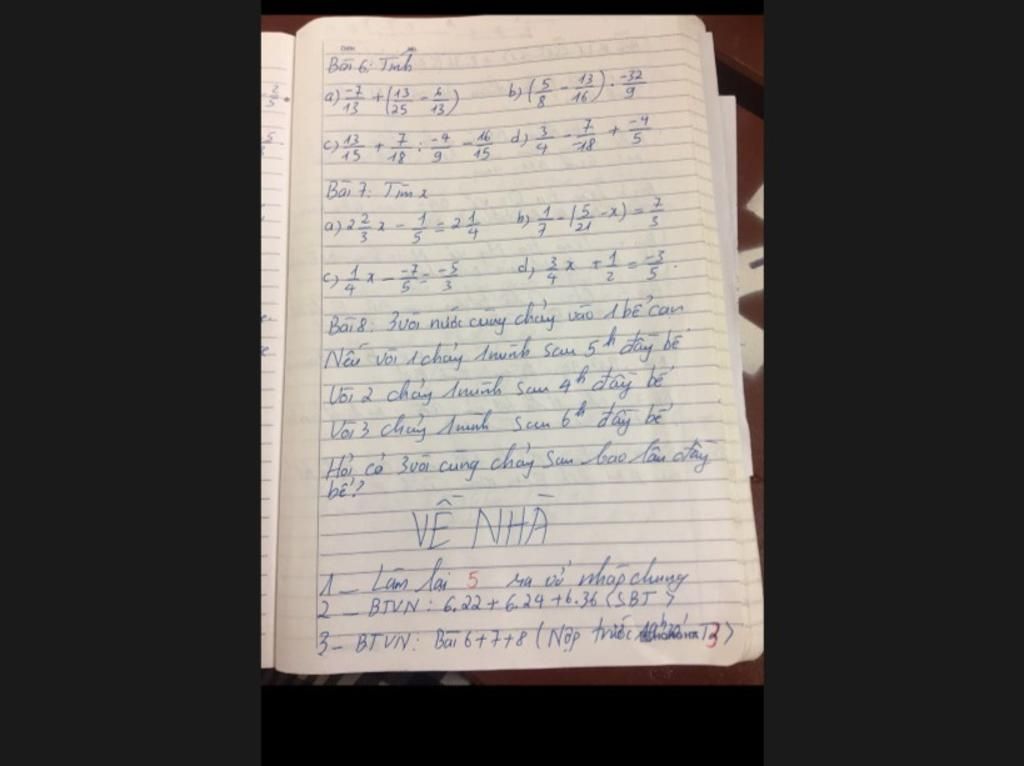 Bài 6: Tính
a) -7/13 + (13/25 - 6/13) b) (5/8 - 13/16) . -32/9
c) 13/15 + 7/18 : -4/9 - 16/15 d) 3/4 - 7/-18 + -4/5
Bài 7: Tìm x
a) 2 2/3 x - 1/5 = 2 1/4 b) 1/7 - (5/21 - x) = 7/3
c) 1/4 x - -7/5 = -5/3 d, 3/4 x + 1/2 = -3/5.
Bài 8: 3 vòi nước cùng chảy vào 1 bể cạn
Nếu vòi 1 chảy 1 mình sau 5h đầy bể
Vòi 2 chảy 1 mình sau 4h đầy bể
Vòi 3 chảy 1 mình sau 6h đầy bể
Hỏi cả 3 vòi cùng chảy sau bao lâu đầy
bể?
VỀ NHÀ
1 - Làm lại 5 ra vở nháp chung
2 - BTVN: 6.22 + 6.24 + 6.36 (SBT)
3 - BTVN: Bài 6+7+8 (Nộp trước T3)